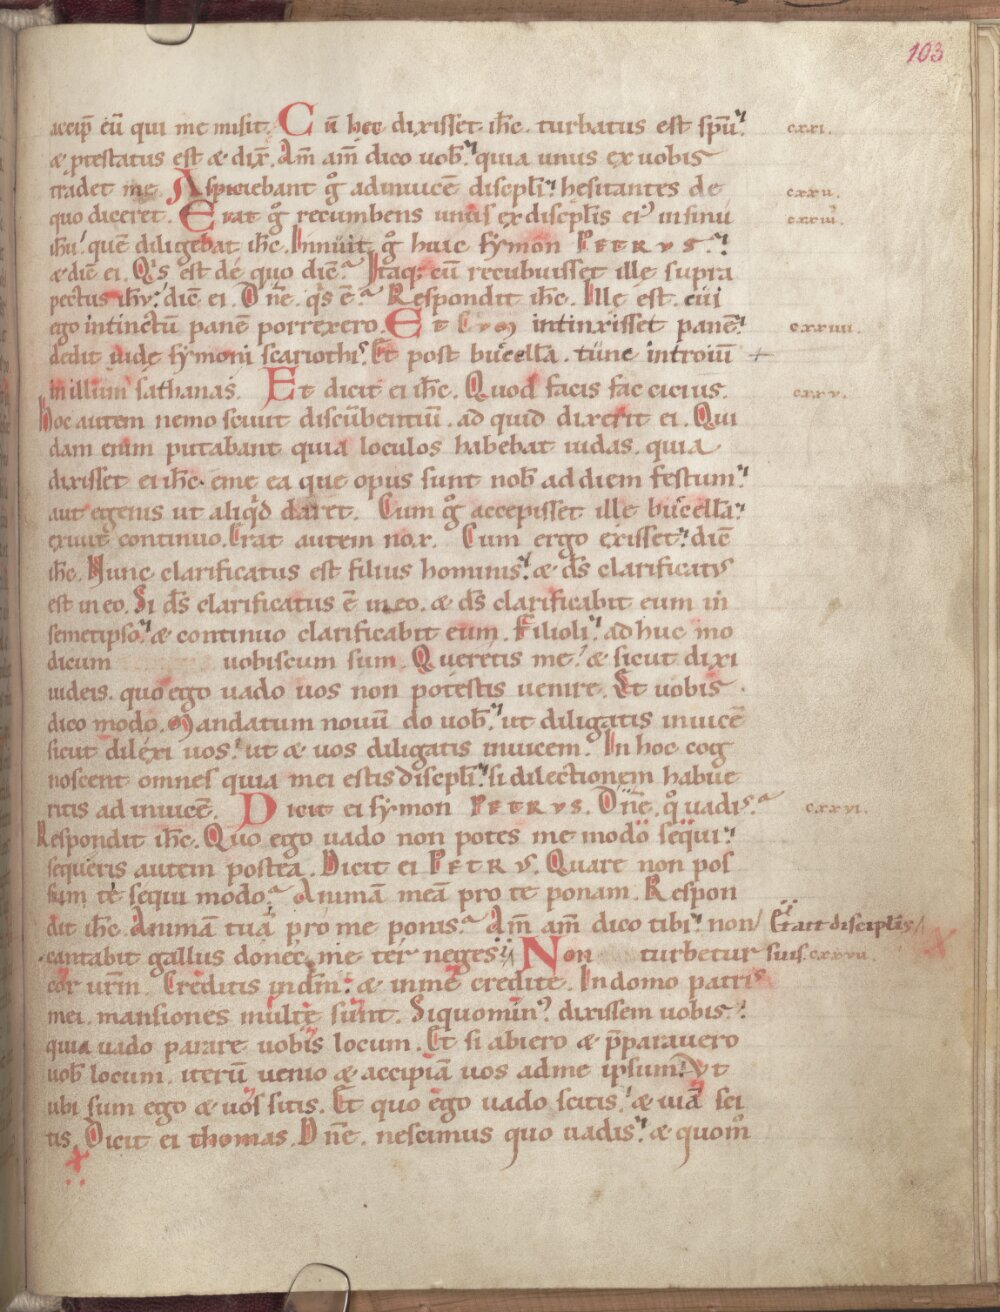 103
accip̄ eū qui me misit. Cū hec dixisset ih̄c. turbatus est sp̄u. cxxi.
& p̄testatus est & dix̄. Am̄ am̄ dico uob̄. quia unus ex uobis
tradet me. Aspiciebant g̊ adinuicē discipl̄i. hesitantes de cxxii.
quo diceret. Erat g̊ recumbens unus ex discipl̄is ei' in sinu cxxiii.
ih̄u quē diligebat ih̄c. Innuit g̊ huic symon PETRVS.
& dic̄ ei. Qͥs est de quo dic̄. Itaq; cū recubuisset ille supra
pectus ih̄u. dic̄ ei. Dn̄e. qͥs ē. Respondit ih̄c. Ille est. cui
ego intinctū panē porrexero. Et Cum intinxisset panē. cxxiiii.
dedit iude symoni scariothis. Et post bucellā. tunc introiuī +
in illum sathanas. Et dicit ei ih̄c. Quod facis fac cicius. cxxv.
Hoc autem nemo sciuit discūbentiū. ad quid dixerit ei. Qui
dam enim putabant quia loculos habebat iudas. quia
dixisset ei ih̄c. eme ea que opus sunt nob̄ ad diem festum.
aut egenis ut aliqͥd daret. Cum g̊ accepisset ille bucellā.
exiuit continuo. Erat autem nox. Cum ergo exisset. dic̄
ih̄c. Nunc clarificatus est filius hominis. & d̄s clarificatus
est in eo. Si d̄s clarificatus ē in eo. & d̄s clarificabit eum in
semetipso. & continuo clarificabit eum. Filioli. adhuc mo
dicum uobiscum sum. Queretis me. & sicut dixi
iudeis. quo ego uado uos non potestis uenire. Et uobis
dico modo. Mandatum nouū do uob̄. ut diligatis inuicē
sicut dilexi uos. ut & uos diligatis inuicem. In hoc cog
noscent omnes quia mei estis discipl̄i. si dilectionem habue
ritis ad inuicē. Dicit ei symon PETRVS. Dn̄e. q̊ uadis. cxxvi.
Respondit ih̄c. Quo ego uado non potes me modo sequi.
sequeris autem postea. Dicit ei PETRVS. Quare non pos
sum te sequi modo. Animā meā pro te ponam. Respon
dit ih̄c. Animā tuā pro me ponis. Am̄ am̄ dico tibi. non Et ait discipl̄is
cantabit gallus donec me ter neges. Non turbetur suis. cxxvii.
cor ur̄m. Creditis in dm̄. & in me credite. In domo patris
mei. mansiones multe sunt. Siquomin'. dixissem uobis.
quia uado parare uobis locum. Et si abiero & p̄parauero
uob̄ locum. iterū uenio & accipiā uos ad me ipsum. Vt
ubi sum ego & uos sitis. Et quo ego uado scitis. & uiā sci
tis. Dicit ei thomas. Dn̄e. nescimus quo uadis. & quom̊